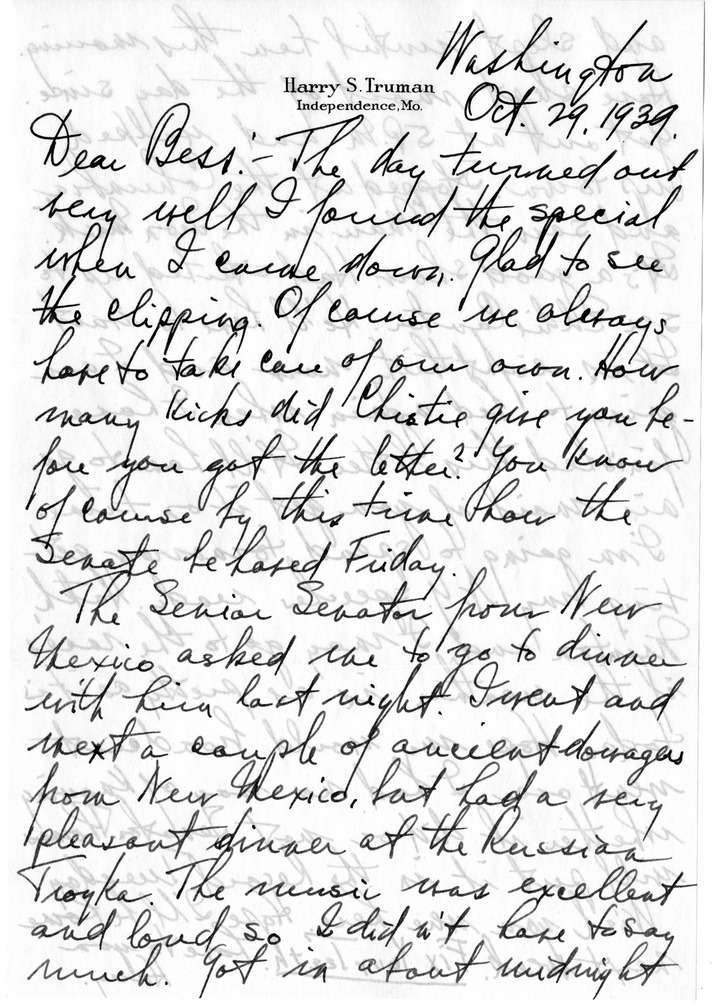 Washington
Harry S. Truman
Independence, Mo.
Oct. 29, 1939.
Dear Bess:- The day turned out
very well I found the special
when I came down. Glad to see
the clipping. Of course we always
have to take care of our own. How
many kicks did Christie give you be-
fore you got the letter? You know
of course by this time how the
Senate behaved Friday.
The Senior Senator from New
Mexico asked me to go to dinner
with him last night. I went and
met a couple of ancient dowagers
from New Mexico, but had a very
pleasant dinner at the Russian
Troyka. The music was excellent
and loud so I did n't have to say
much. Got in about midnight